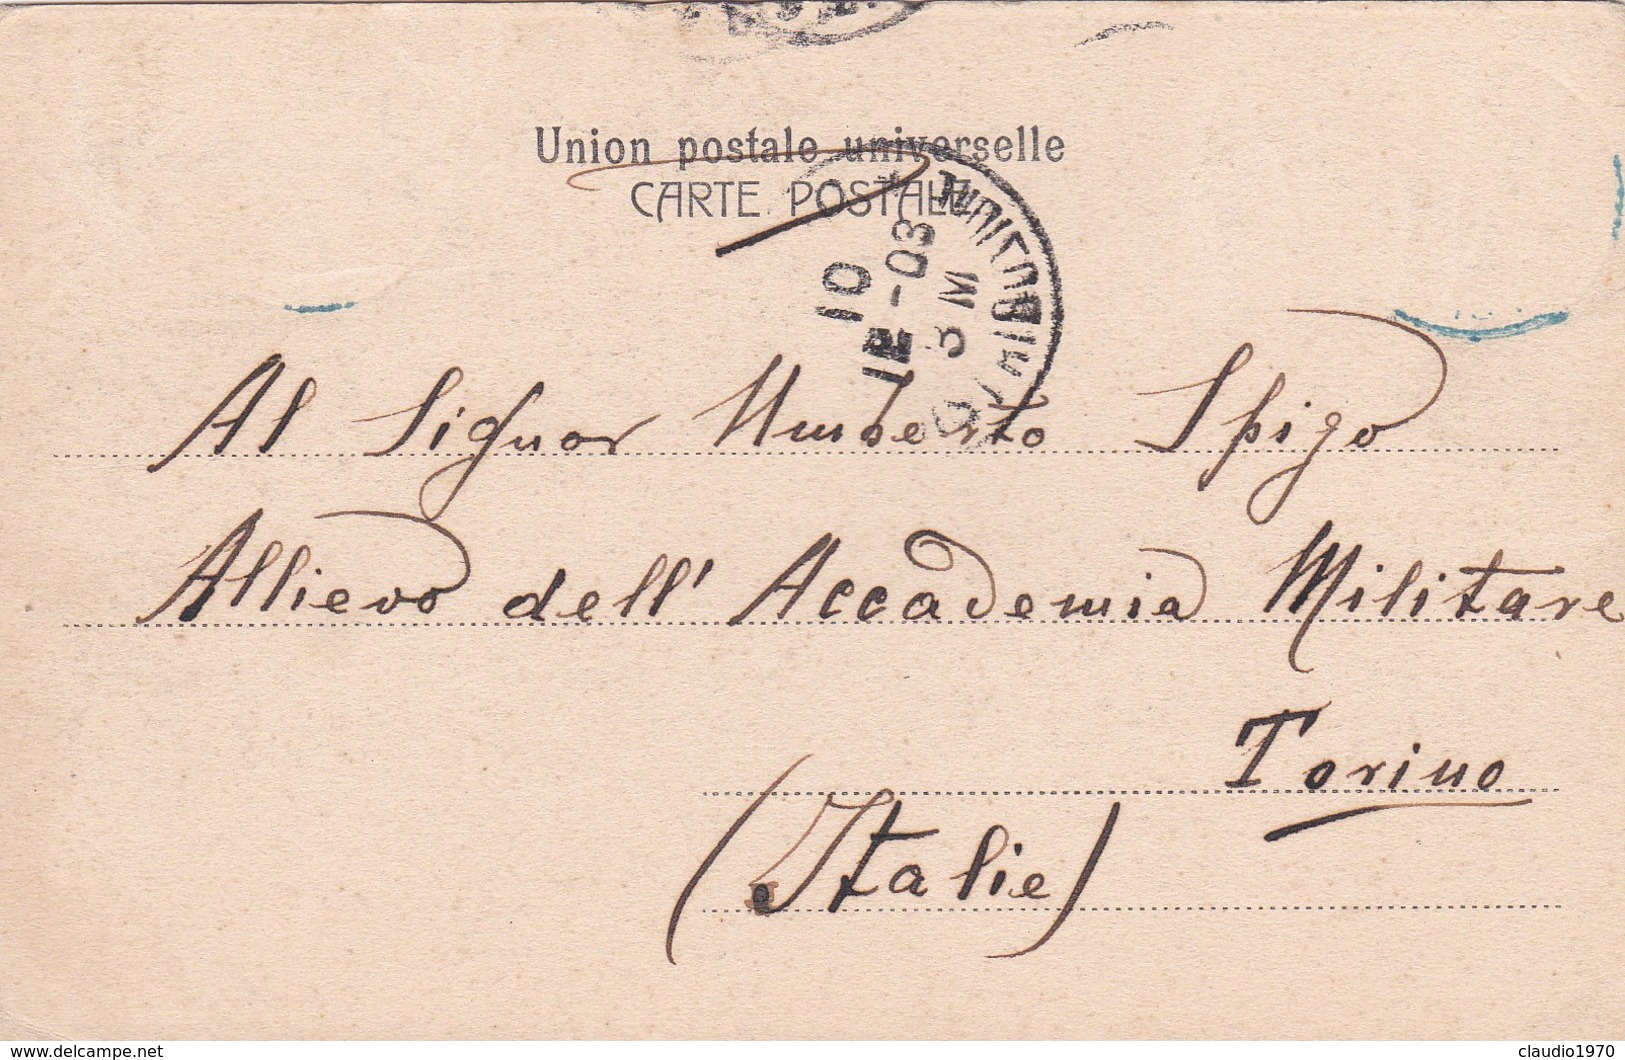 Union postale universelle
CARTE POSTALE
10
12-03
3 M
Al Signor Umberto Spigo
Allievo dell' Accademia Militare
Torino
(Italie)
www.delcampe.net
claudio1970